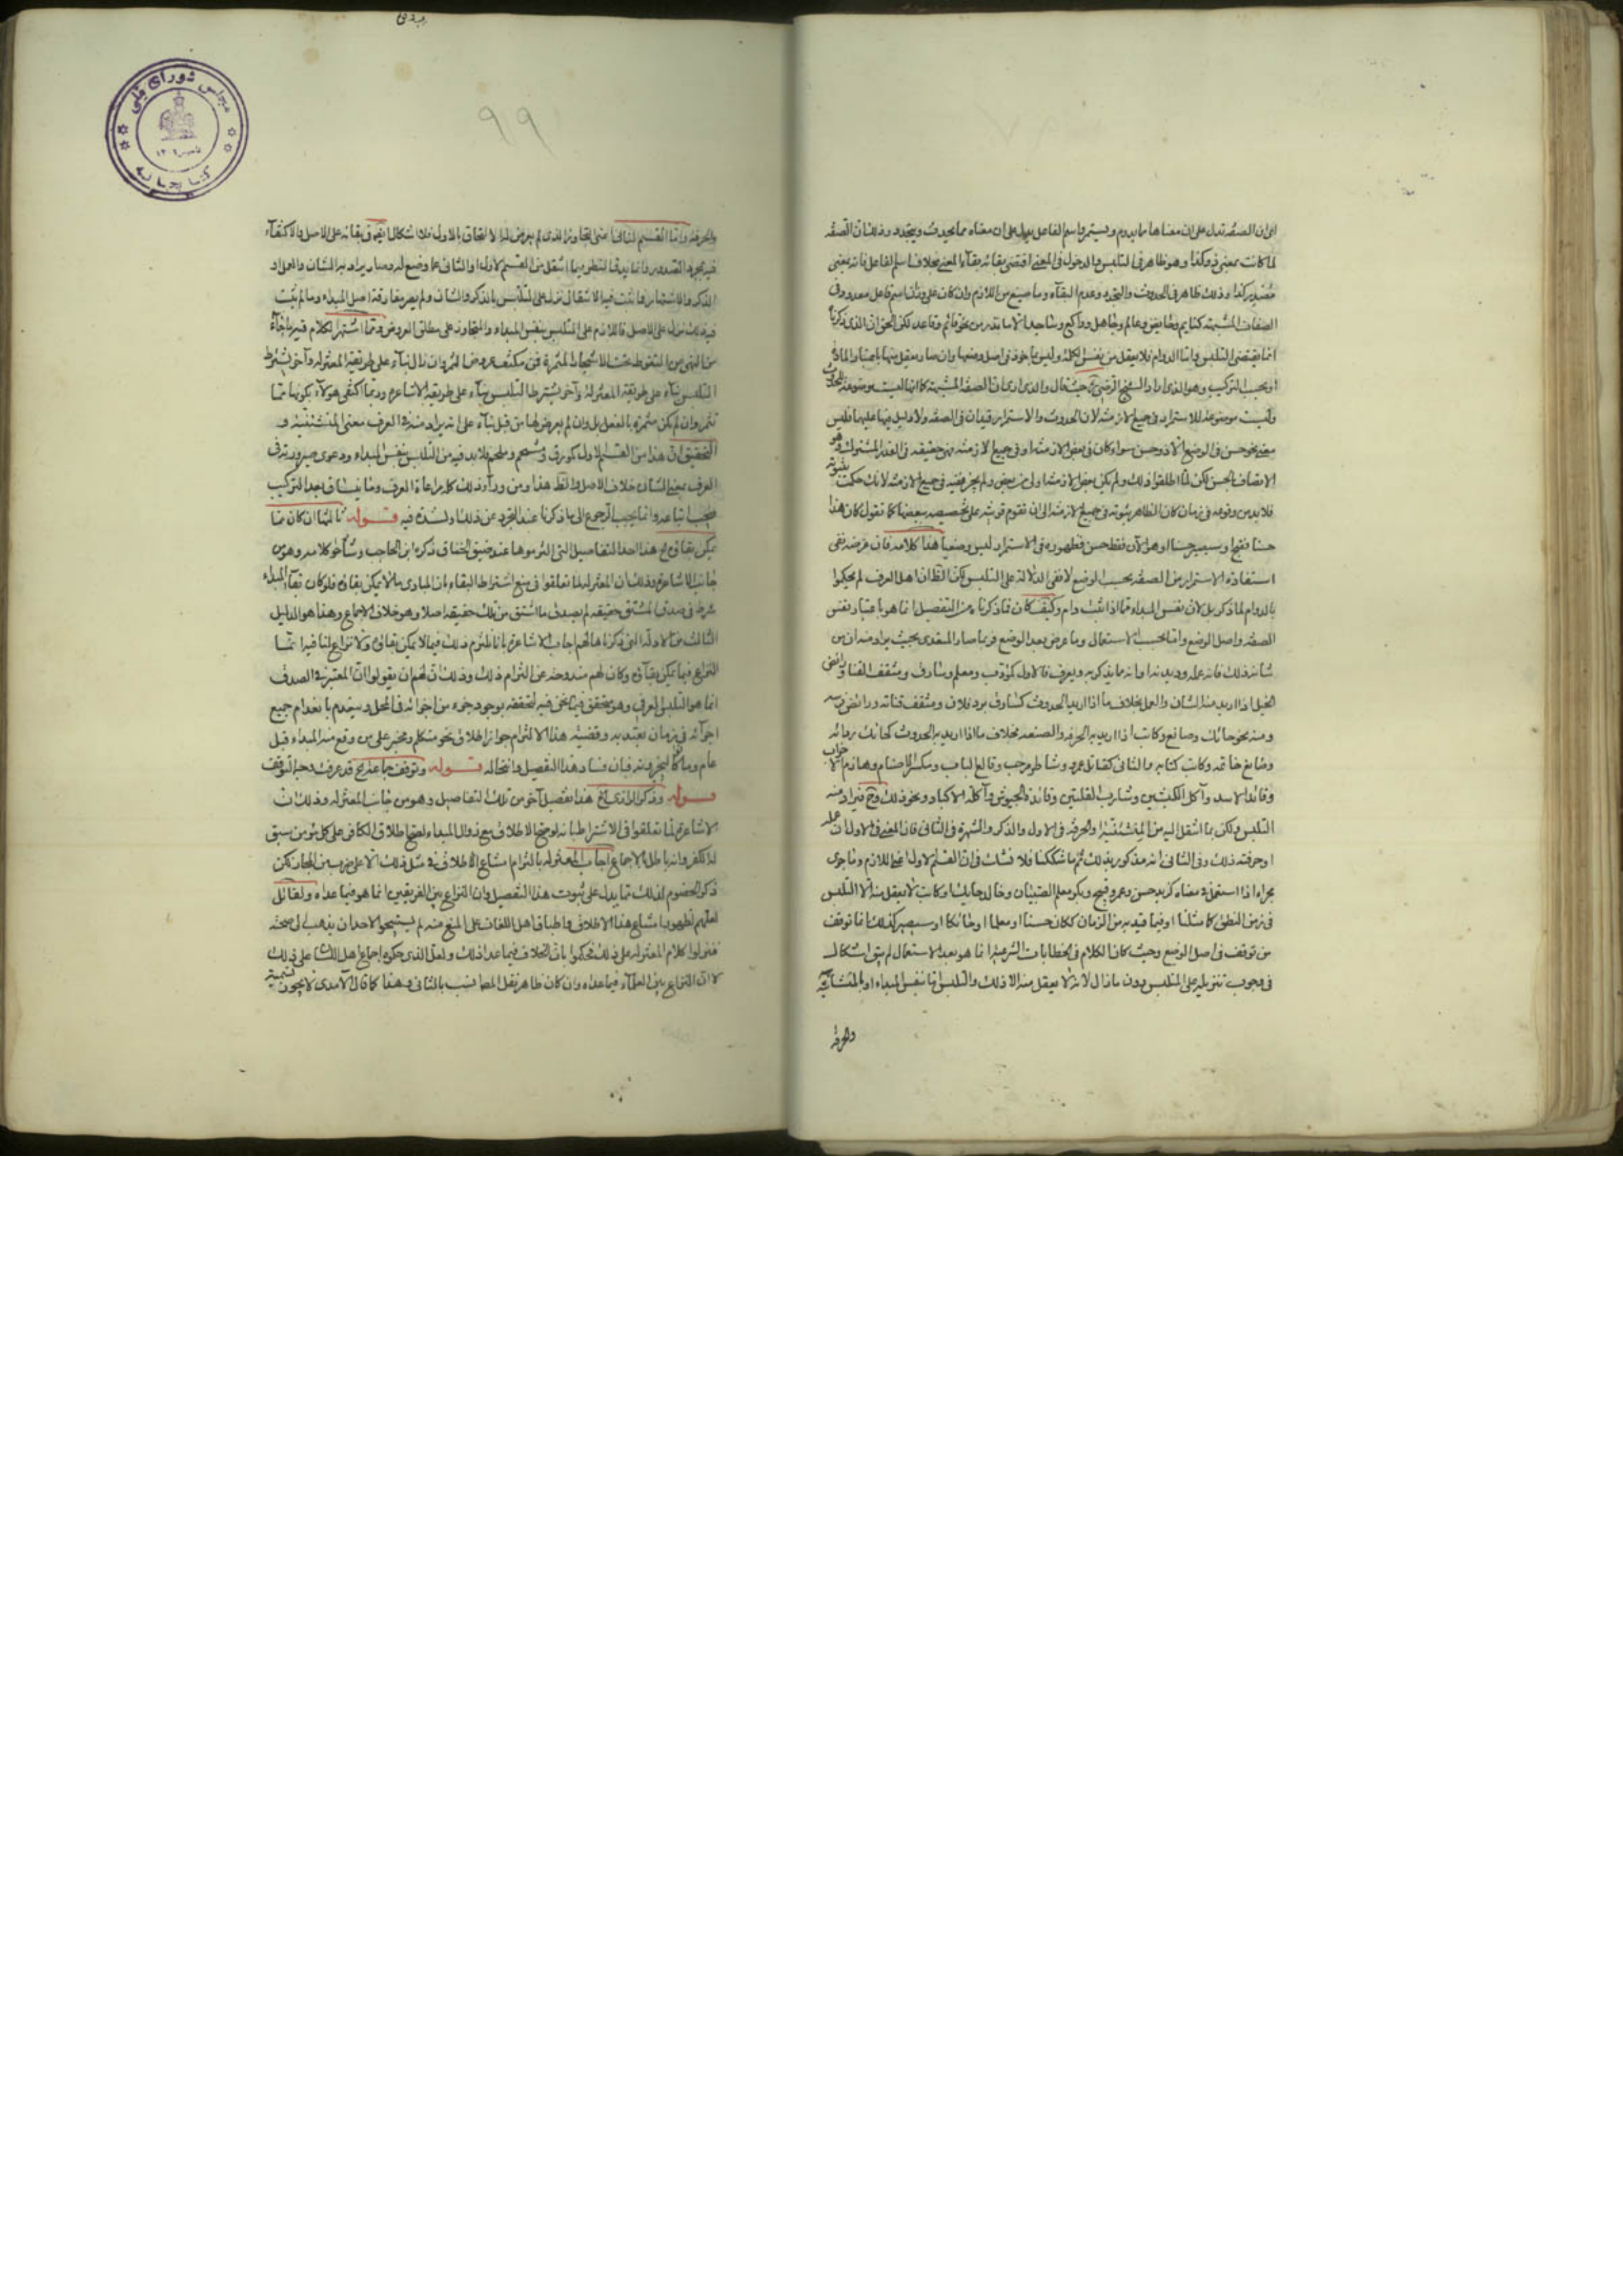 اى ان الصفة تدل على ان معناها مما يدوم ويستمر واسم الفاعل يدل على ان معناه مما يحدث ويتجدد وذلك ان الصفة
لما كانت بمعنى ذو كذا وهو ظاهر فى التلبس والدخول فى المعنى اقتضى بقائه بقاء المعنى بخلاف اسم الفاعل فانه بمعنى
كذا وذلك ظاهر فى الحدوث والتجدد وعدم البقاء وما صيغ من اللازم وان كان على وزان اسم فاعل معدود فى
الصفات المشبهة وعالم وجاهل وراكع وساجد الا ما ندر من نحو قائم وقاعد لكن الحق ان الذى ذكرنا
انما يقتضى التلبس واما الدوام فلا يعقل من نفس الكلمة وليس ماخوذ فى اصل وضعها وان صار يعقل منها باعتبار المادة
او بحسب التركيب وهو الذى اراد الشيخ الرضى حيث قال والذى ارى ان الصفة المشبهة كما انها ليست موضوعة للحدوث
وليست موضوعة للاستمرار فى جميع الازمنة لان الحدوث والاستمرار قيدان فى الصفة ولا دليل فيها عليهما فليس
معنى نحو حسن فى الوضع الا ذو حسن سواء كان فى بعض الازمنة او فى جميع الازمنة فهو حقيقة فى القدر المشترك وهو
الاتصاف بالحسن لكن لما اطلقوا ذلك ولم يكن بعض الازمنة اولى من بعض ولم يجز نفيه فى جميع الازمنة لانك حكمت بثبوته
فلا بد من وقوعه فى زمان كان الظاهر ثبوته فى جميع الازمنة الى ان تقوم قرينة على تخصيصه ببعضها كما تقول كان هذا
حسنا فقبح او سيصير حسنا او هو الآن فقط حسن فظهوره فى الاستمرار ليس وضعيا هذا كلامه فان غرضه نفى
استفادة الاستمرار من الصفة بحسب الوضع لا نفى الدلالة على التلبس لكن الظ ان اهل العرف لم يحكموا
بالدوام لما ذكر بل لان نفس المبداء مما اذا ثبت دام وكيف كان فما ذكرناه من التفصيل انما هو باعتبار نفس
الصفة واصل الوضع واما بحسب الاستعمال وما عرض بعد الوضع فربما صار المتعدى بحيث يراد منه ان من
شانه ذلك فانه عمله وديدنه او انه ما يذكر به ويعرف فالاول كمؤدب ومعلم وسارق ومثقف القنا ورائض
الخيل اذا اريد منه الشان والعمل بخلاف ما اذا اريد الحدوث كسارق برد فلان ومثقف قناته ورائض
ومنه نحو حائك وصانع وكاتب اذا اريد به الحرفة والصنعة بخلاف ما اذا اريد به الحدوث كحائك بردائه
وصائغ خاتمه وكاتب كتابه والثانى كقاتل عمرو وشاطر مرحب وقالع الباب ومكسر الاصنام وهازم الاحزاب
وقائد الاسد وآكل الكبشين وشارب القلتين وقائدة الجيوش وآكلة الاكباد ونحو ذلك وح فيراد منه
التلبس ولكن بما انتقل اليه من والحرفة فى الاول والذكر والشهرة فى الثانى فان المعنى فى الاول ان عمله
او حرفته ذلك وفى الثانى انه مذكور بذلك ثم ما شككنا فلا نشك فى ان القسم الاول اعنى اللازم وما جرى
مجراه اذا استعمل فى معناه كزيد حسن وعمرو قبيح وبكر معلم الصبيان وخالد حائك او كاتب لا يعقل منه الا التلبس
فى زمن النطق كما مثلنا او فيما قيد به من الزمان ككان حسنا او معلما او حائكا او سيصير كذلك انما توقف
من توقف فى اصل الوضع وحيث كان الكلام فى خطابات الشرعية انما هو بعد الاستعمال لم يبق اشكال
فى وجوب تنزيله على المتلبس دون ما زال لانه لا يعقل منه الا ذلك والتلبس اما بنفس المبداء او
والحرفة
٩٩
والحرفة واما القسم الثانى اعنى الذى لم يعرض له الالتحاق بالاول فلا اشكال فى بقائه على الاصل والاكتفاء
فيه بمجرد الصدور وانما يدق النظر فيما انتقل من القسم الاول او الثانى عما وضع له وصار يراد به الشان والعمل او
الذكر والاشتهار فما ثبت فيه الانتقال نزل على التلبس بالذكر والشان ولم يضر مفارقة اصل المبداء وما لم يثبت
فيه ذلك نزل على الاصل فاللازم على المتلبس بنفس المبداء على مطلق العروض ومما اشتهر الكلام فيه ما جاء
من النهى عن التغوط تحت الاشجار المثمرة فمن مكتف بعروض الثمر وان زال بناء على طريقة المعتزلة وآخر يشترط
التلبس بناء على طريقة الاشاعرة وربما اكتفى هولاء بكونها مما
تثمر وان لم تكن مثمرة بالفعل بل وان لم يعرض لها من قبل بناء على انه يراد منه فى العرف معنى و
التحقيق ان هذا من القسم الاول كمورق فلا بد فيه من التلبس بنفس المبداء ودعوى صيرورته فى
العرف بمعنى الشان خلاف الاصل والظ هذا ومن وراء ذلك كله مراعاة العرف وما ينساق بعد التركيب
فيجب اتباعه وانما يجب الرجوع الى ما ذكرنا عند التجرد عن ذلك او الشك فيه قوله ثالثها ان كان مما
يمكن بقاؤه الخ هذا احد التفاصيل التى التزموها عند ضيق الخناق ذكره ابن الحاجب وهو من
جانب الاشاعرة وذلك ان المعتزلة لما تعلقوا فى منع اشتراط البقاء بان المبادى ما لا يمكن بقاؤه فلو كان بقاء المبداء
شرط فى صدق المشتق حقيقة لم يصدق ما اشتق من تلك حقيقة اصلا وهو خلاف الاجماع وهذا هو الدليل
الثالث من الادلة التى ذكرناها لهم اجاب الاشاعرة بانا نلتزم ذلك فيما لا يمكن بقاؤه ولا نزاع لنا فيه انما
النزاع فيما يمكن بقاؤه وكان لهم مندوحة عن التزام ذلك وذلك ان لهم ان يقولوا ان المعتبر فى الصدق
انما هو التلبس العرفى وهو يتحقق فيما نحن فيه لتحققه بوجود جزء من اجزائه فى المحل وينعدم بانعدام جميع
اجزائه فى زمان يعتد به وقضية هذا الالتزام جواز اطلاق نحو متكلم ومخبر على من وقع منه المبداء قبل
عام فبان فساد هذا التفصيل واستحاله قوله وتوقف جماعة الخ قد عرف وجه التوقف
قوله وذكر الرازى الخ هذا تفصيل آخر من تلك التفاصيل وهو من جانب المعتزلة وذلك ان
الاشاعرة لما تعلقوا فى الاشتراط بانه لو صح الاطلاق مع زوال المبداء لصح اطلاق الكافر على كل مؤمن سبق
له الكفر وانه باطل بالاجماع اجاب المعتزلة بالتزام امتناع الاطلاق فى مثل ذلك الا على ضرب من المجاز لكن
ذكر الخصوم لذلك مما يدل على ثبوت هذا التفصيل وان النزاع بين الفريقين انما هو فيما عداه ولقائل
لعلهم لظهور امتناع هذا الاطلاق واطباق اهل اللغات على المنع منه لم يستبيحوا لاحد ان يذهب الى صحته
فنزلوا كلام المعتزلة على ذلك فحكموا بان الخلاف فيما عدا ذلك ولعل الذى حكوه اجماع اهل اللسان على ذلك
لا ان النزاع بين العلماء فيما عداه وان كان ظاهر نقل بالثانى وهذا كما قال الآمدى لا يجوز تسمية
شوراى ملى
كتابخانه